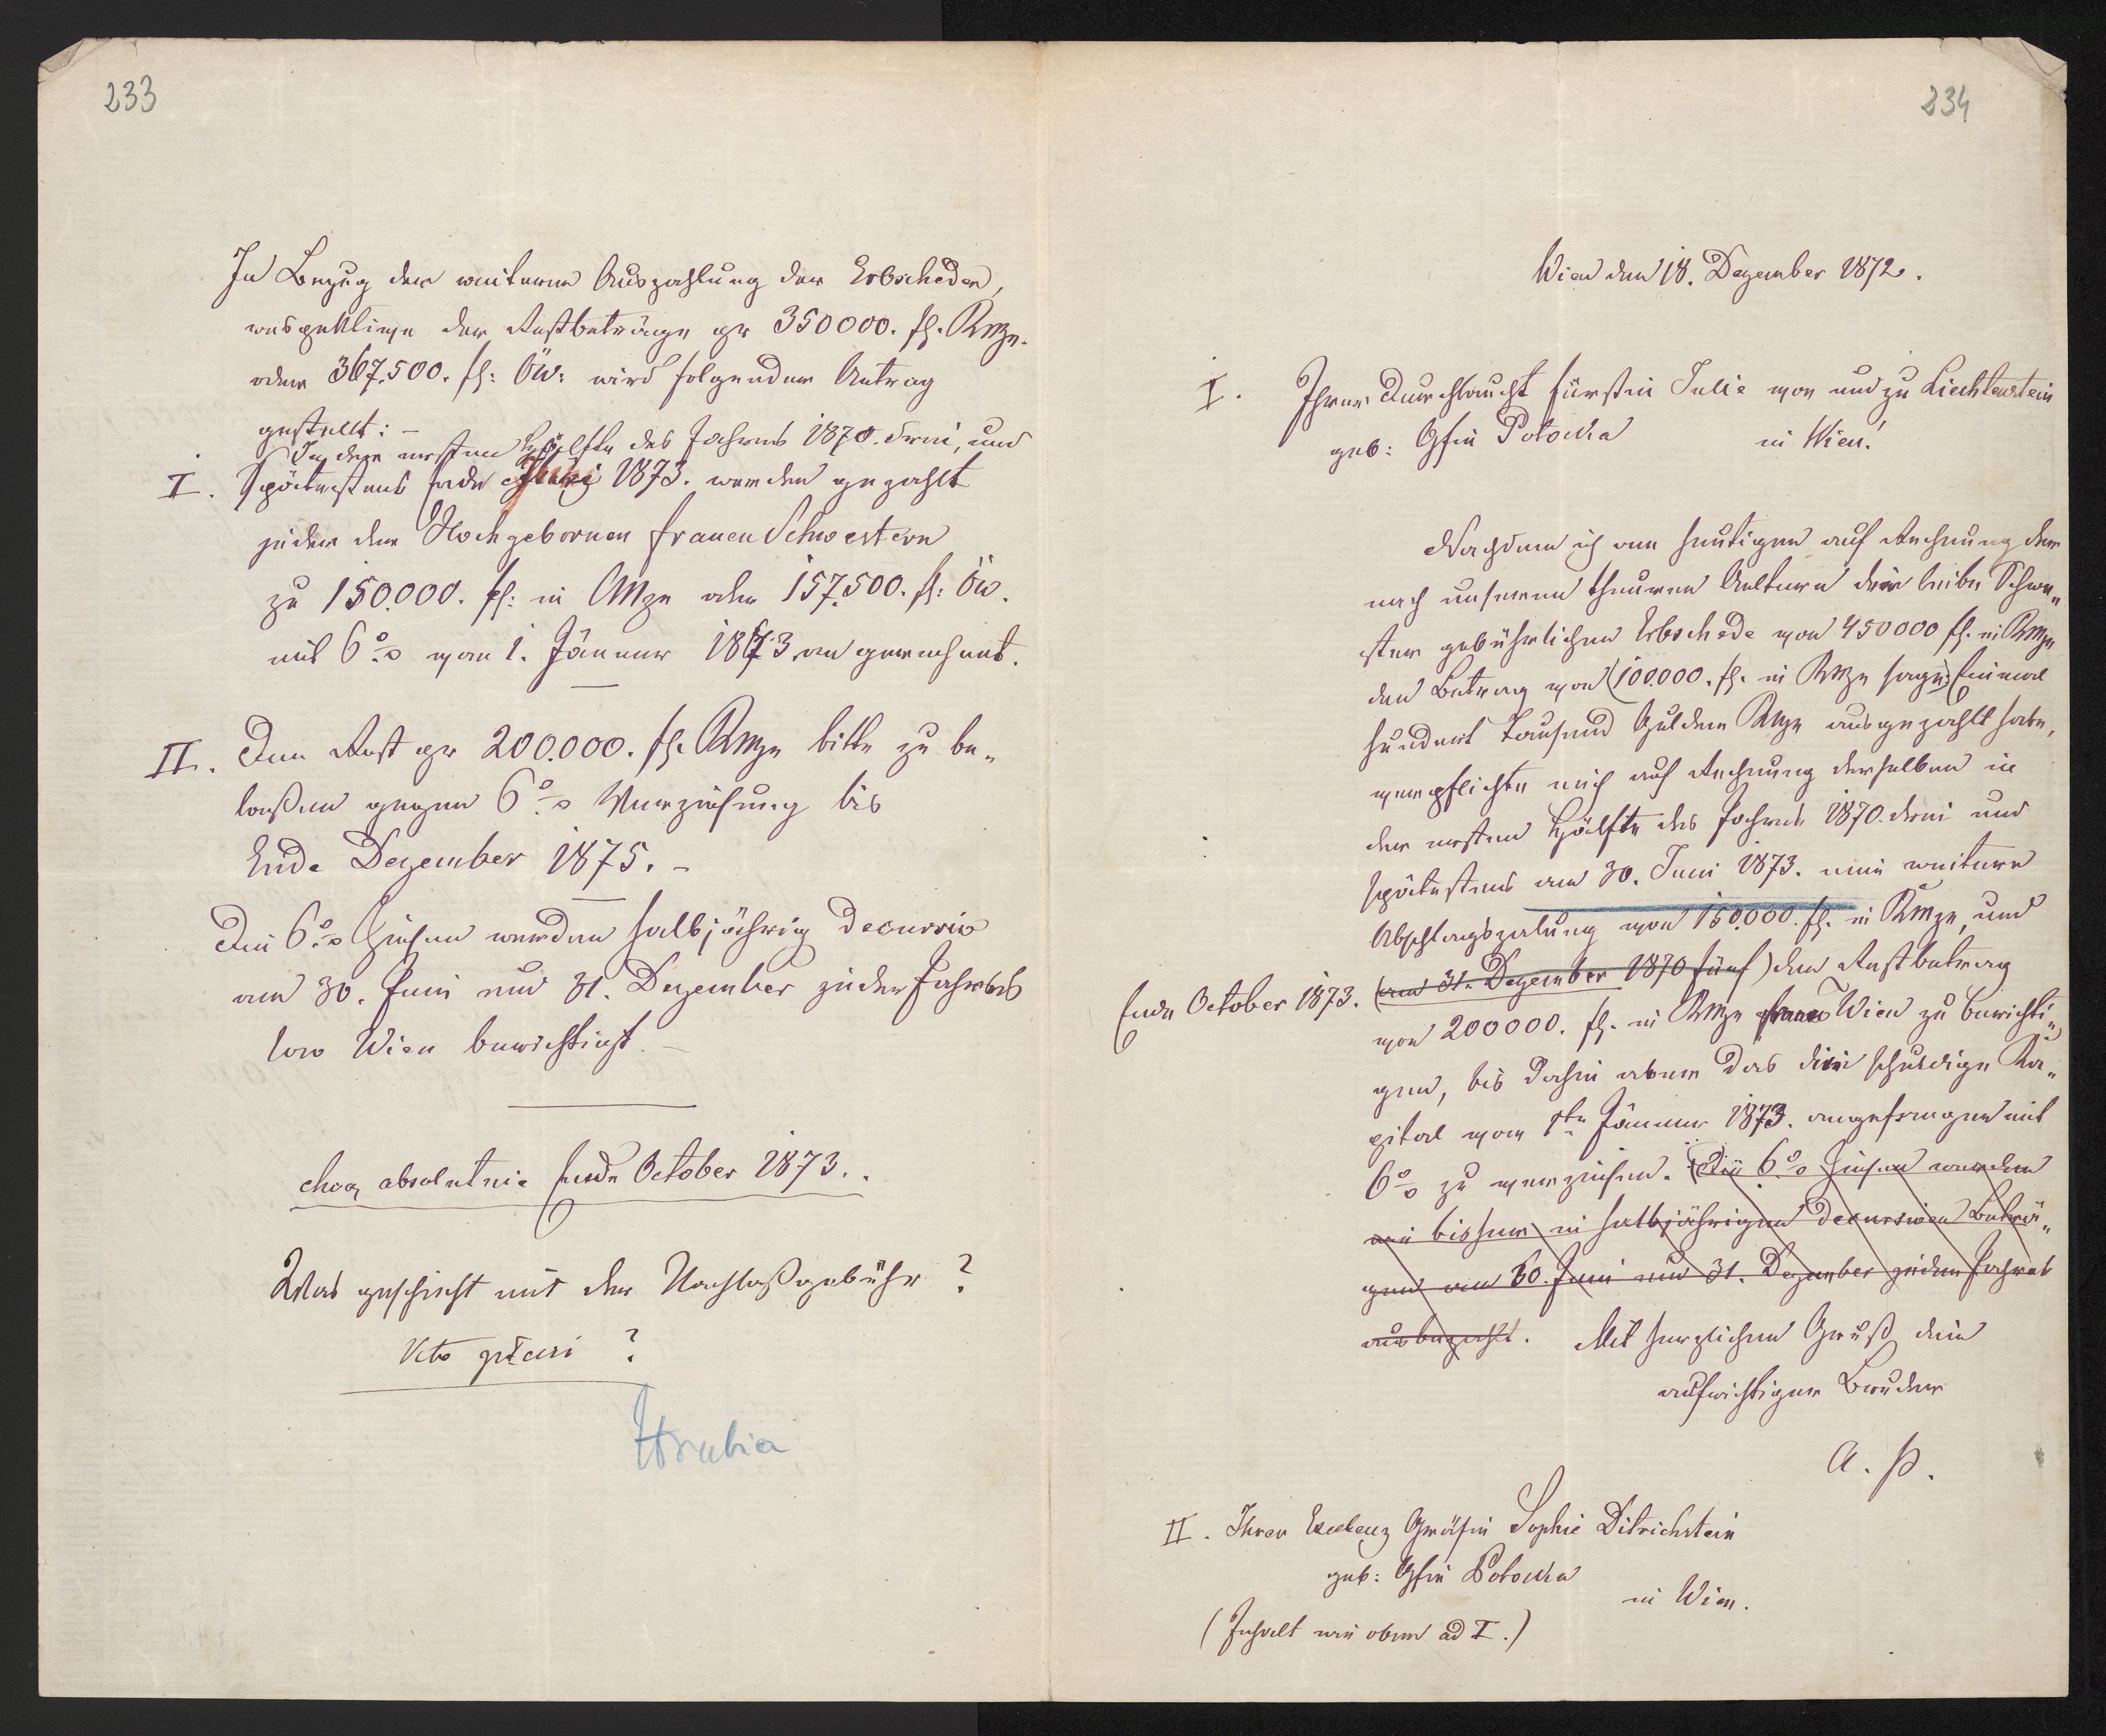 233
In Bezug der weiteren Auszahlung der Erbscheden,
respektive der Restbeträge pr 350000. fl. RMze.
oder 367.500. fl: ÖW: wird folgender Antrag
gestellt: –
In der ersten Hälfte des Jahres 1870. drei, und
I. Spätestens Ende Juni 1873. werden gezahlt
jeder der Hochgebornen Frauen Schwestern
zu 150.000. fl: in CMze oder 157.500. fl: ÖW.
mit 6% vom 1. Jänner 1873 an gerechnet.
II. Den Rest pr 200.000. fl. RMze bitte zu be„
laßen gegen 6% Verzinsung bis
Ende Dezember 1875. –
Die 6% Zinsen werden halbjährig decursiv
am 30. Juni und 31. Dezember jeden Jahres
loco Wien berichtigt. –
chcą absolutnie Ende October 1873..
Was geschieht mit der Nachlaßgebühr?
Kto płaci?
Hrabia
234
Wien den 18. Dezember 1872.
I. Ihrer Durchlaucht Fürstin Julie von und zu Liechtenstein
geb: Gfin Potocka in Wien!
Nachdem ich am heutigen auf Rechnung der
nach unseren theuren Aeltern dir liebe Schwe„
ster gebührlichen Erbschede von 450000 fl. in RMze
den Betrag von (100.000. fl. in RMze sage:) Einmal
hundert Tausend Gulden RMze ausgezahlt habe,
verpflichte mich auf Rechnung derselben in
der ersten Hälfte des Jahres 1870. drei und
spätestens am 30. Juni 1873. eine weitere
Abschlagszalung von 150.000. fl. in RMze, und
Ende October 1873. (am 31. Dezember 1870 fünf) den Restbetrag
von 200000. fl. in RMze franco Wien zu berichti„
gen, bis dahin aber das dir schuldige Ka„
pital vom 1ten Jänner 1873. angefangen mit
6% zu verzinsen. (Die 6% Zinsen werden
wie bisher in halbjährigen decursiven Beträ„
gen am 30. Juni und 31. Dezember jeden Jahres
ausbezahlt. Mit herzlichem Gruß dein
aufrichtiger Bruder
A. P.
II. Ihrer Excelenz Gräfin Sophie Ditrichstein
geb: Gfin Potocka
in Wien.
(Inhalt wie oben ad I.)